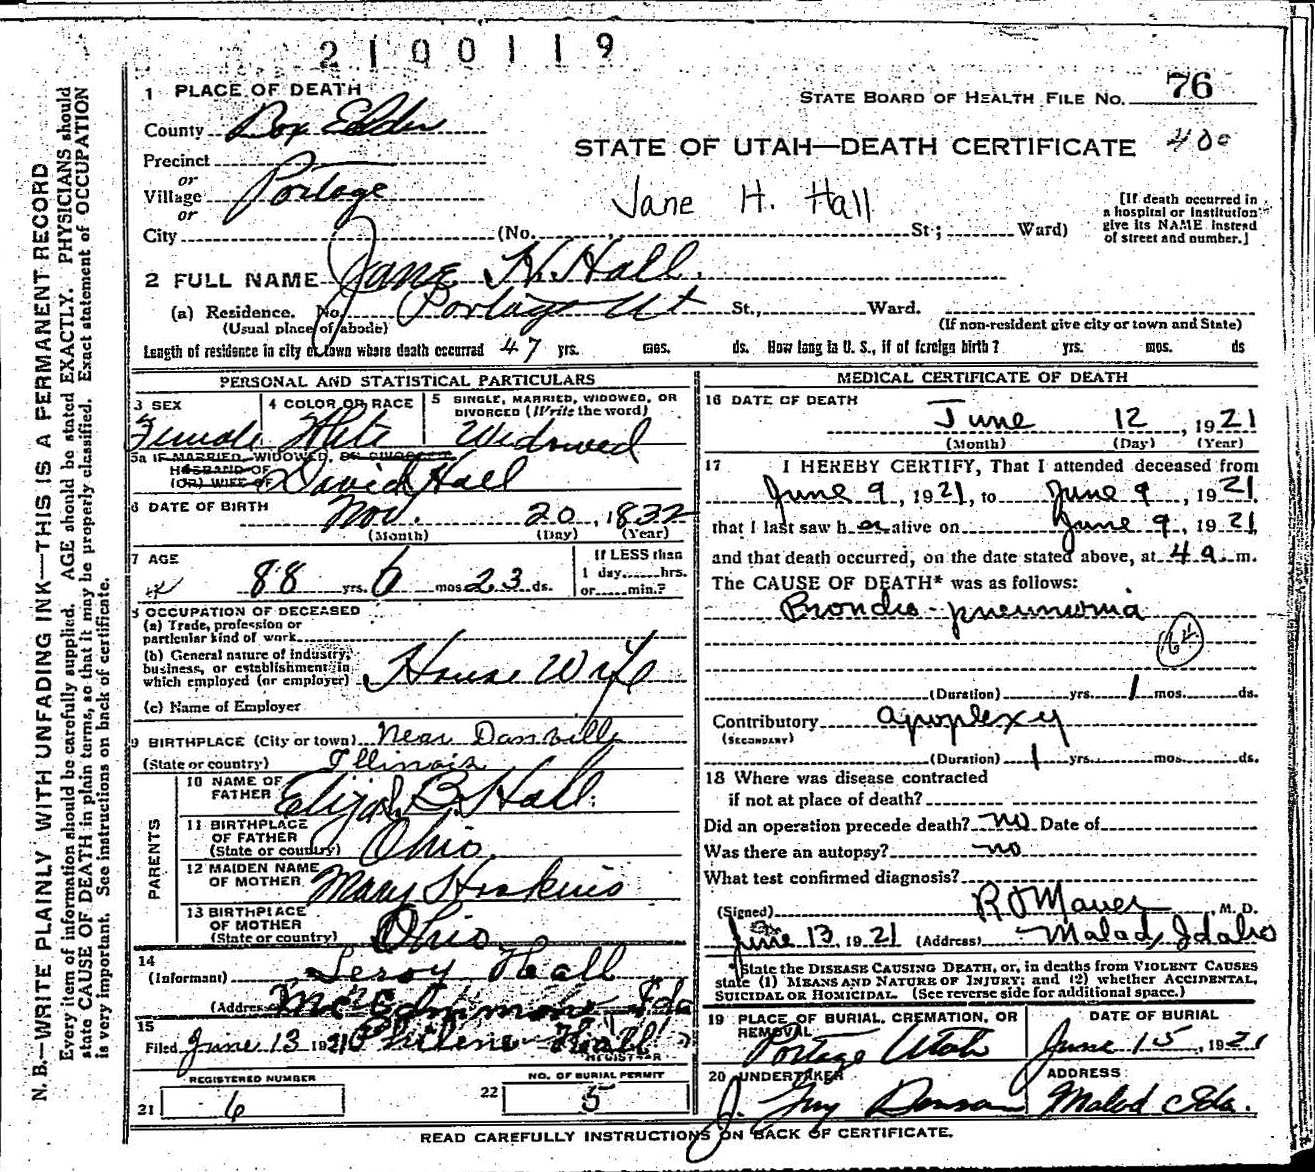 2100119
1 PLACE OF DEATH
STATE BOARD OF HEALTH FILE NO. 76
County Box Elder
STATE OF UTAH—DEATH CERTIFICATE 400
Precinct
or
Village Portage
or
Jane H. Hall
[If death occurred in a hospital or institution give its NAME instead of street and number.]
City (No. , St; Ward)
2 FULL NAME Jane H. Hall.
(a) Residence. No. Portage Ut St., Ward.
(Usual place of abode) (If non-resident give city or town and State)
Length of residence in city or town where death occurred 47 yrs. mos. ds. How long in U. S., if of foreign birth? yrs. mos. ds
PERSONAL AND STATISTICAL PARTICULARS
3 SEX Female
4 COLOR OR RACE White
5 SINGLE, MARRIED, WIDOWED, OR DIVORCED (Write the word) Widowed
5a IF MARRIED, WIDOWED, OR DIVORCED
HUSBAND OF
(OR) WIFE OF David Hall
6 DATE OF BIRTH Nov. 20, 1832
(Month) (Day) (Year)
7 AGE 88 yrs. 6 mos 23 ds.
If LESS than
1 day......hrs.
or......min.?
8 OCCUPATION OF DECEASED
(a) Trade, profession or
particular kind of work
(b) General nature of industry,
business, or establishment in
which employed (or employer) House Wife
(c) Name of Employer
9 BIRTHPLACE (City or town) Near Danville
(State or country) Illinois
PARENTS
10 NAME OF FATHER Elijah B. Hall.
11 BIRTHPLACE OF FATHER (State or country) Ohio.
12 MAIDEN NAME OF MOTHER Mary Hoskins
13 BIRTHPLACE OF MOTHER (State or country) Ohio
14
(Informant) Leroy Hall
(Address) Ida
15
Filed June 13 1921 Philene Hall
REGISTRAR
REGISTERED NUMBER
21 6
NO. OF BURIAL PERMIT
22 5
MEDICAL CERTIFICATE OF DEATH
16 DATE OF DEATH
June 12, 1921
(Month) (Day) (Year)
17 I HEREBY CERTIFY, That I attended deceased from
June 9, 1921, to June 9, 1921
that I last saw her alive on June 9, 1921
and that death occurred, on the date stated above, at 4 a m.
The CAUSE OF DEATH* was as follows:
Broncho-pneumonia
64
(Duration) yrs. 1 mos. ds.
Contributory apoplexy
(SECONDARY)
(Duration) 1 yrs. mos. ds.
18 Where was disease contracted
if not at place of death?
Did an operation precede death? no Date of
Was there an autopsy? no
What test confirmed diagnosis?
(Signed) M. D.
June 13, 1921 (Address) Malad, Idaho
*State the DISEASE CAUSING DEATH, or, in deaths from VIOLENT CAUSES
state (1) MEANS AND NATURE OF INJURY; and (2) whether ACCIDENTAL,
SUICIDAL OR HOMICIDAL. (See reverse side for additional space.)
19 PLACE OF BURIAL, CREMATION, OR REMOVAL Portage Utah
DATE OF BURIAL June 15, 1921
20 UNDERTAKER J. Guy Benson
ADDRESS Malad Ida.
READ CAREFULLY INSTRUCTIONS ON BACK OF CERTIFICATE.
N. B.—WRITE PLAINLY WITH UNFADING INK—THIS IS A PERMANENT RECORD
Every item of information should be carefully supplied. AGE should be stated EXACTLY. PHYSICIANS should
state CAUSE OF DEATH in plain terms, so that it may be properly classified. Exact statement of OCCUPATION
is very important. See instructions on back of certificate.